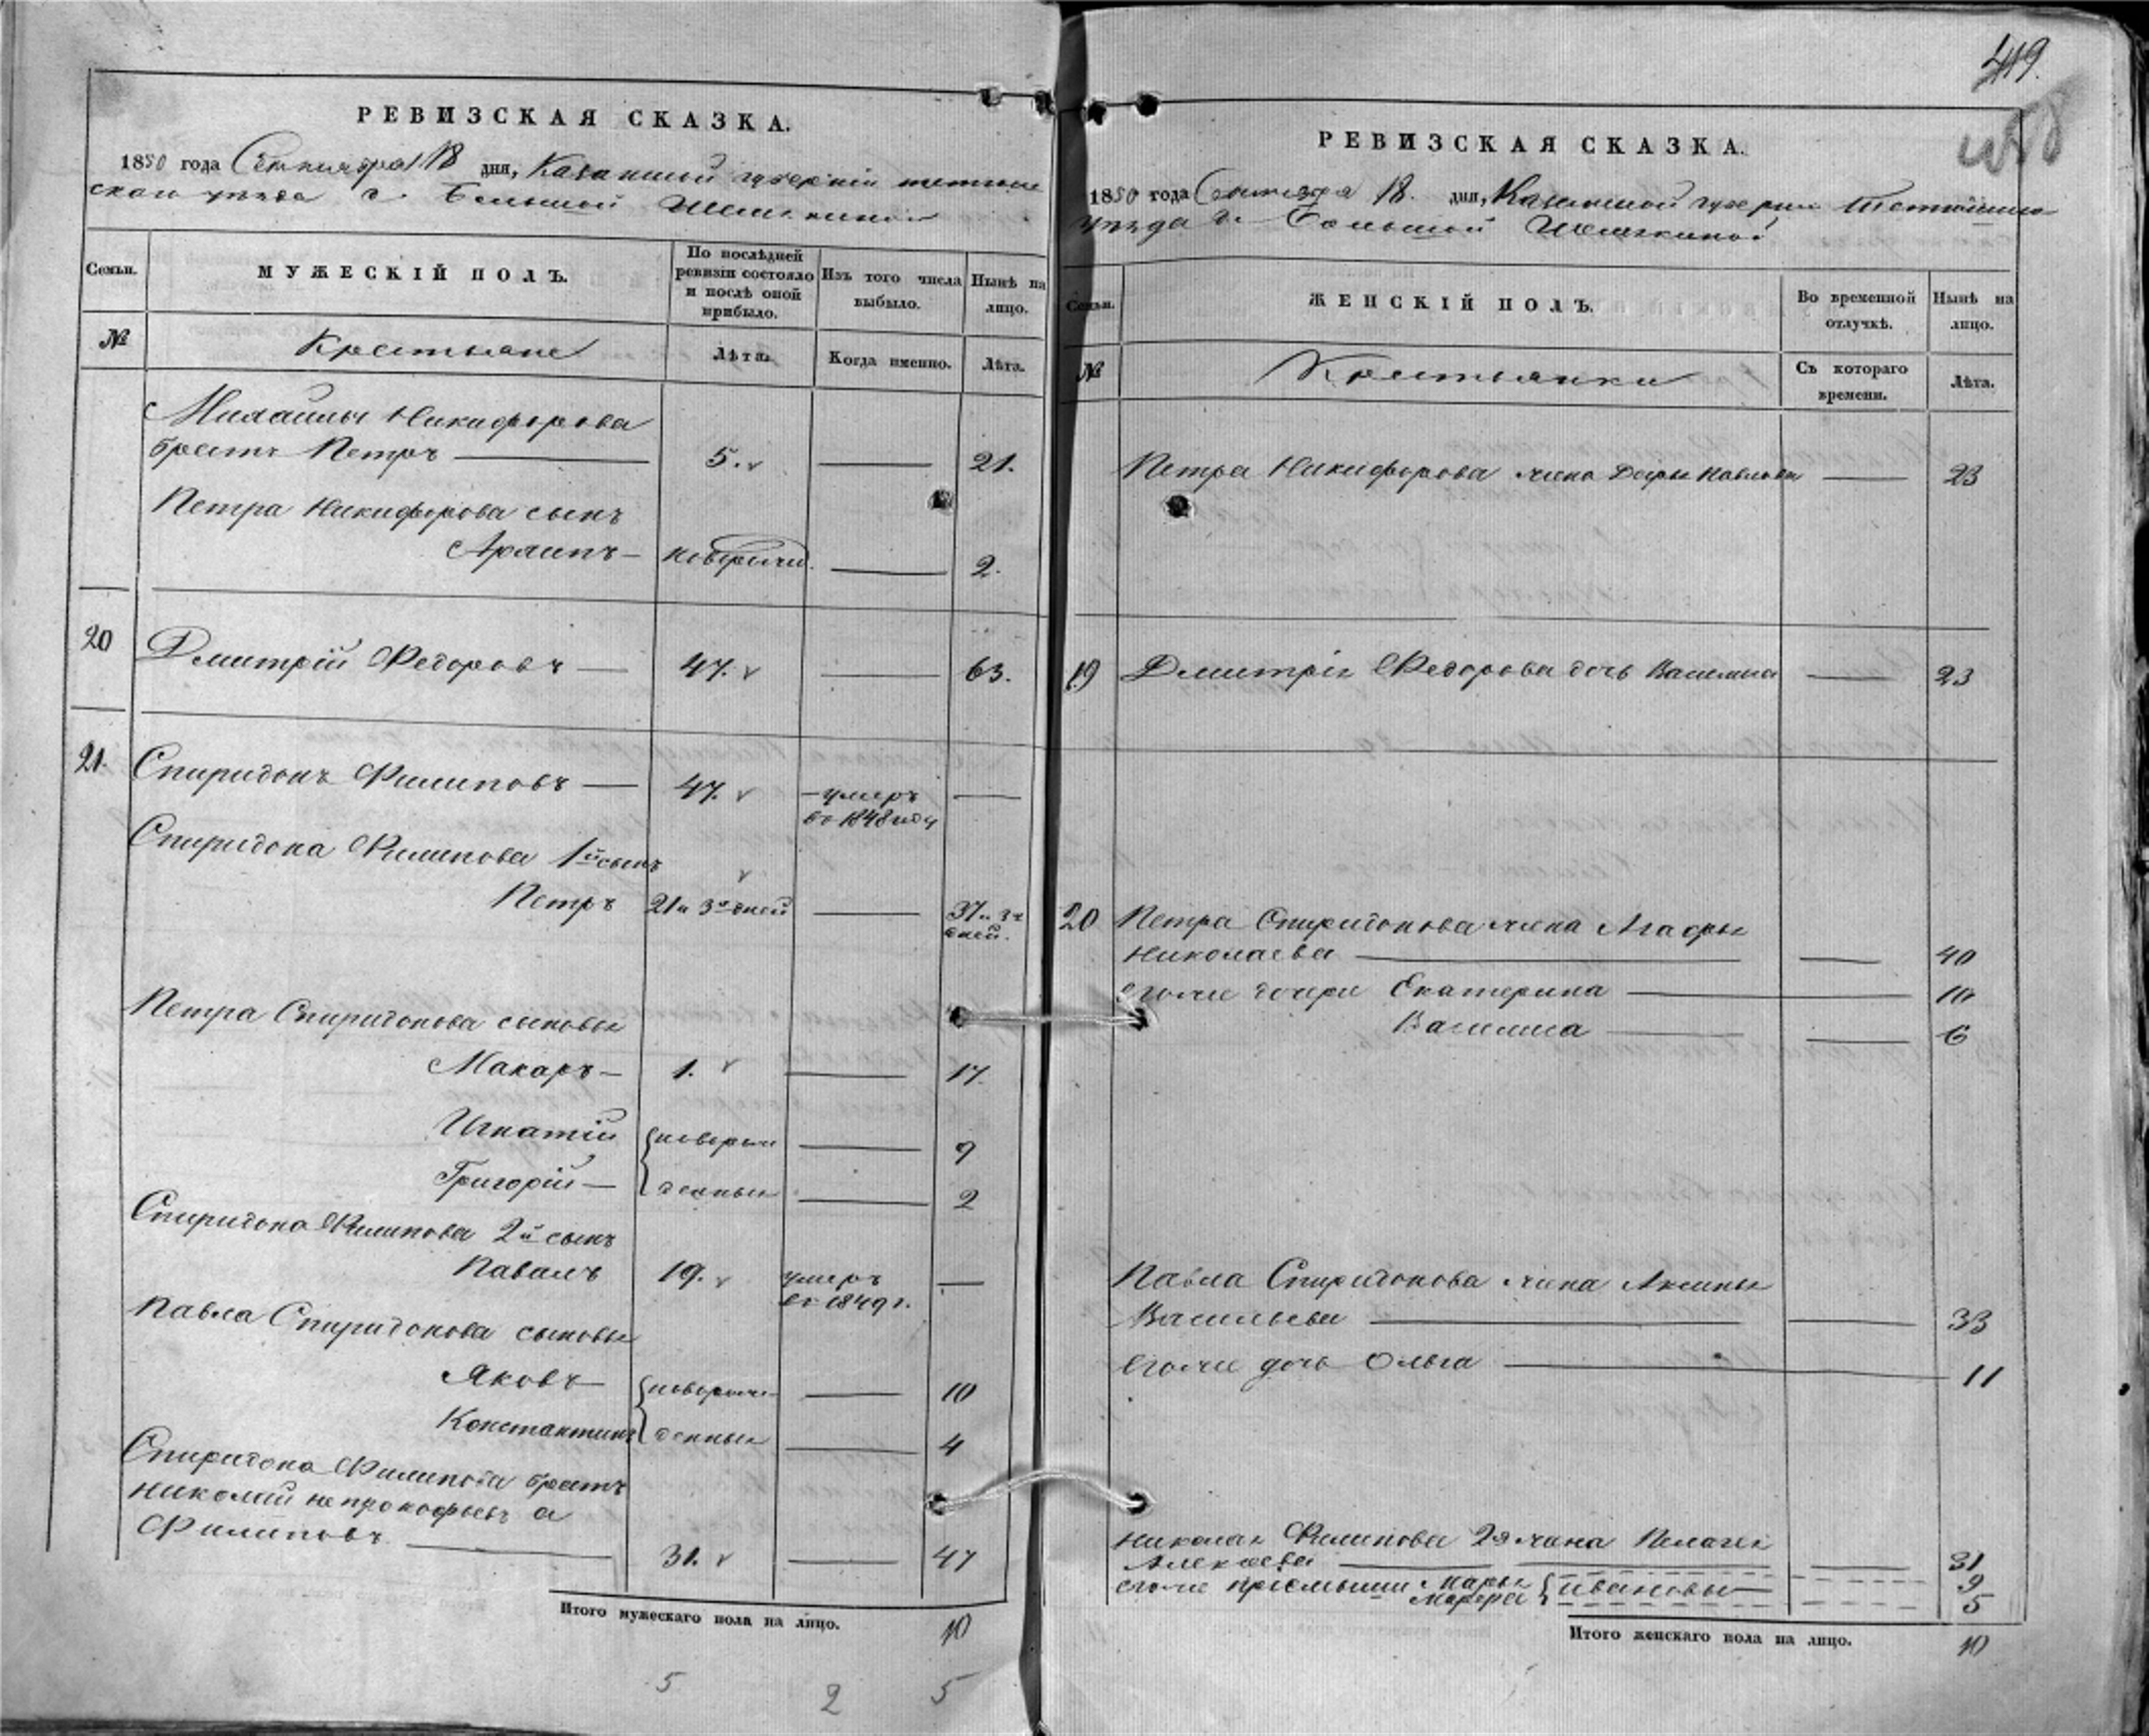 РЕВИЗСКАЯ СКАЗКА.
1850 года Сентября 18 дня, Казанской губерніи тетюш
скаго уезда д. Большой Шемякиной
Семьи.
МУЖЕСКІЙ ПОЛЪ.
По послѣдней ревизіи состояло и послѣ оной прибыло.
Изъ того числа выбыло.
Нынѣ на лицо.
№
Крестьяне
Лѣта.
Когда именно.
Лѣта.
Михайлы Никифорова
братъ Петръ 5. 21.
Петра Никифорова сынъ
Архипъ новорожд. 2.
20 Дмитрій Федоровъ 47. 63.
21. Спиридонъ Филиповъ 47. умеръ
въ 1848 году
Спиридона Филипова 1й сынъ
Петръ 21 и 3 дней 37 и 3
дней.
Петра Спиридонова сыновья
Макаръ 1. 17.
Игнатій новорож 9
Григорій денные 2
Спиридона Филипова 2й сынъ
Павелъ 19. умеръ
въ 1849 г.
Павла Спиридонова сыновья
Яковъ новорож 10
Константинъ денные 4
Спиридона Филипова братъ
Николай не прокофьевъ а
Филиповъ 31. 47
Итого мужескаго пола на лицо. 10
5 2 5
419.
РЕВИЗСКАЯ СКАЗКА.
1850 года Сентября 18. дня, Казанской губерніи Тетюшскаго
уезда д. Большой Шемякиной
Семьи.
ЖЕНСКІЙ ПОЛЪ.
Во временной отлучкѣ.
Нынѣ на лицо.
№
Крестьянки
Съ котораго времени.
Лѣта.
Петра Никифорова жена Дарья Павлова 23
19 Дмитрія Федорова дочь Василиса 23
20 Петра Спиридонова жена Агафья
Николаева 40
Его же дочери Екатерина 10
Василиса 6
Павла Спиридонова жена Аксинья
Васильева 33
Его же дочь Ольга 11
Николая Филипова 2я жена Пелагея
Алексеева 31
его же пріемыши Марья Ивановы 9
Марфа 5
Итого женскаго пола на лицо. 10